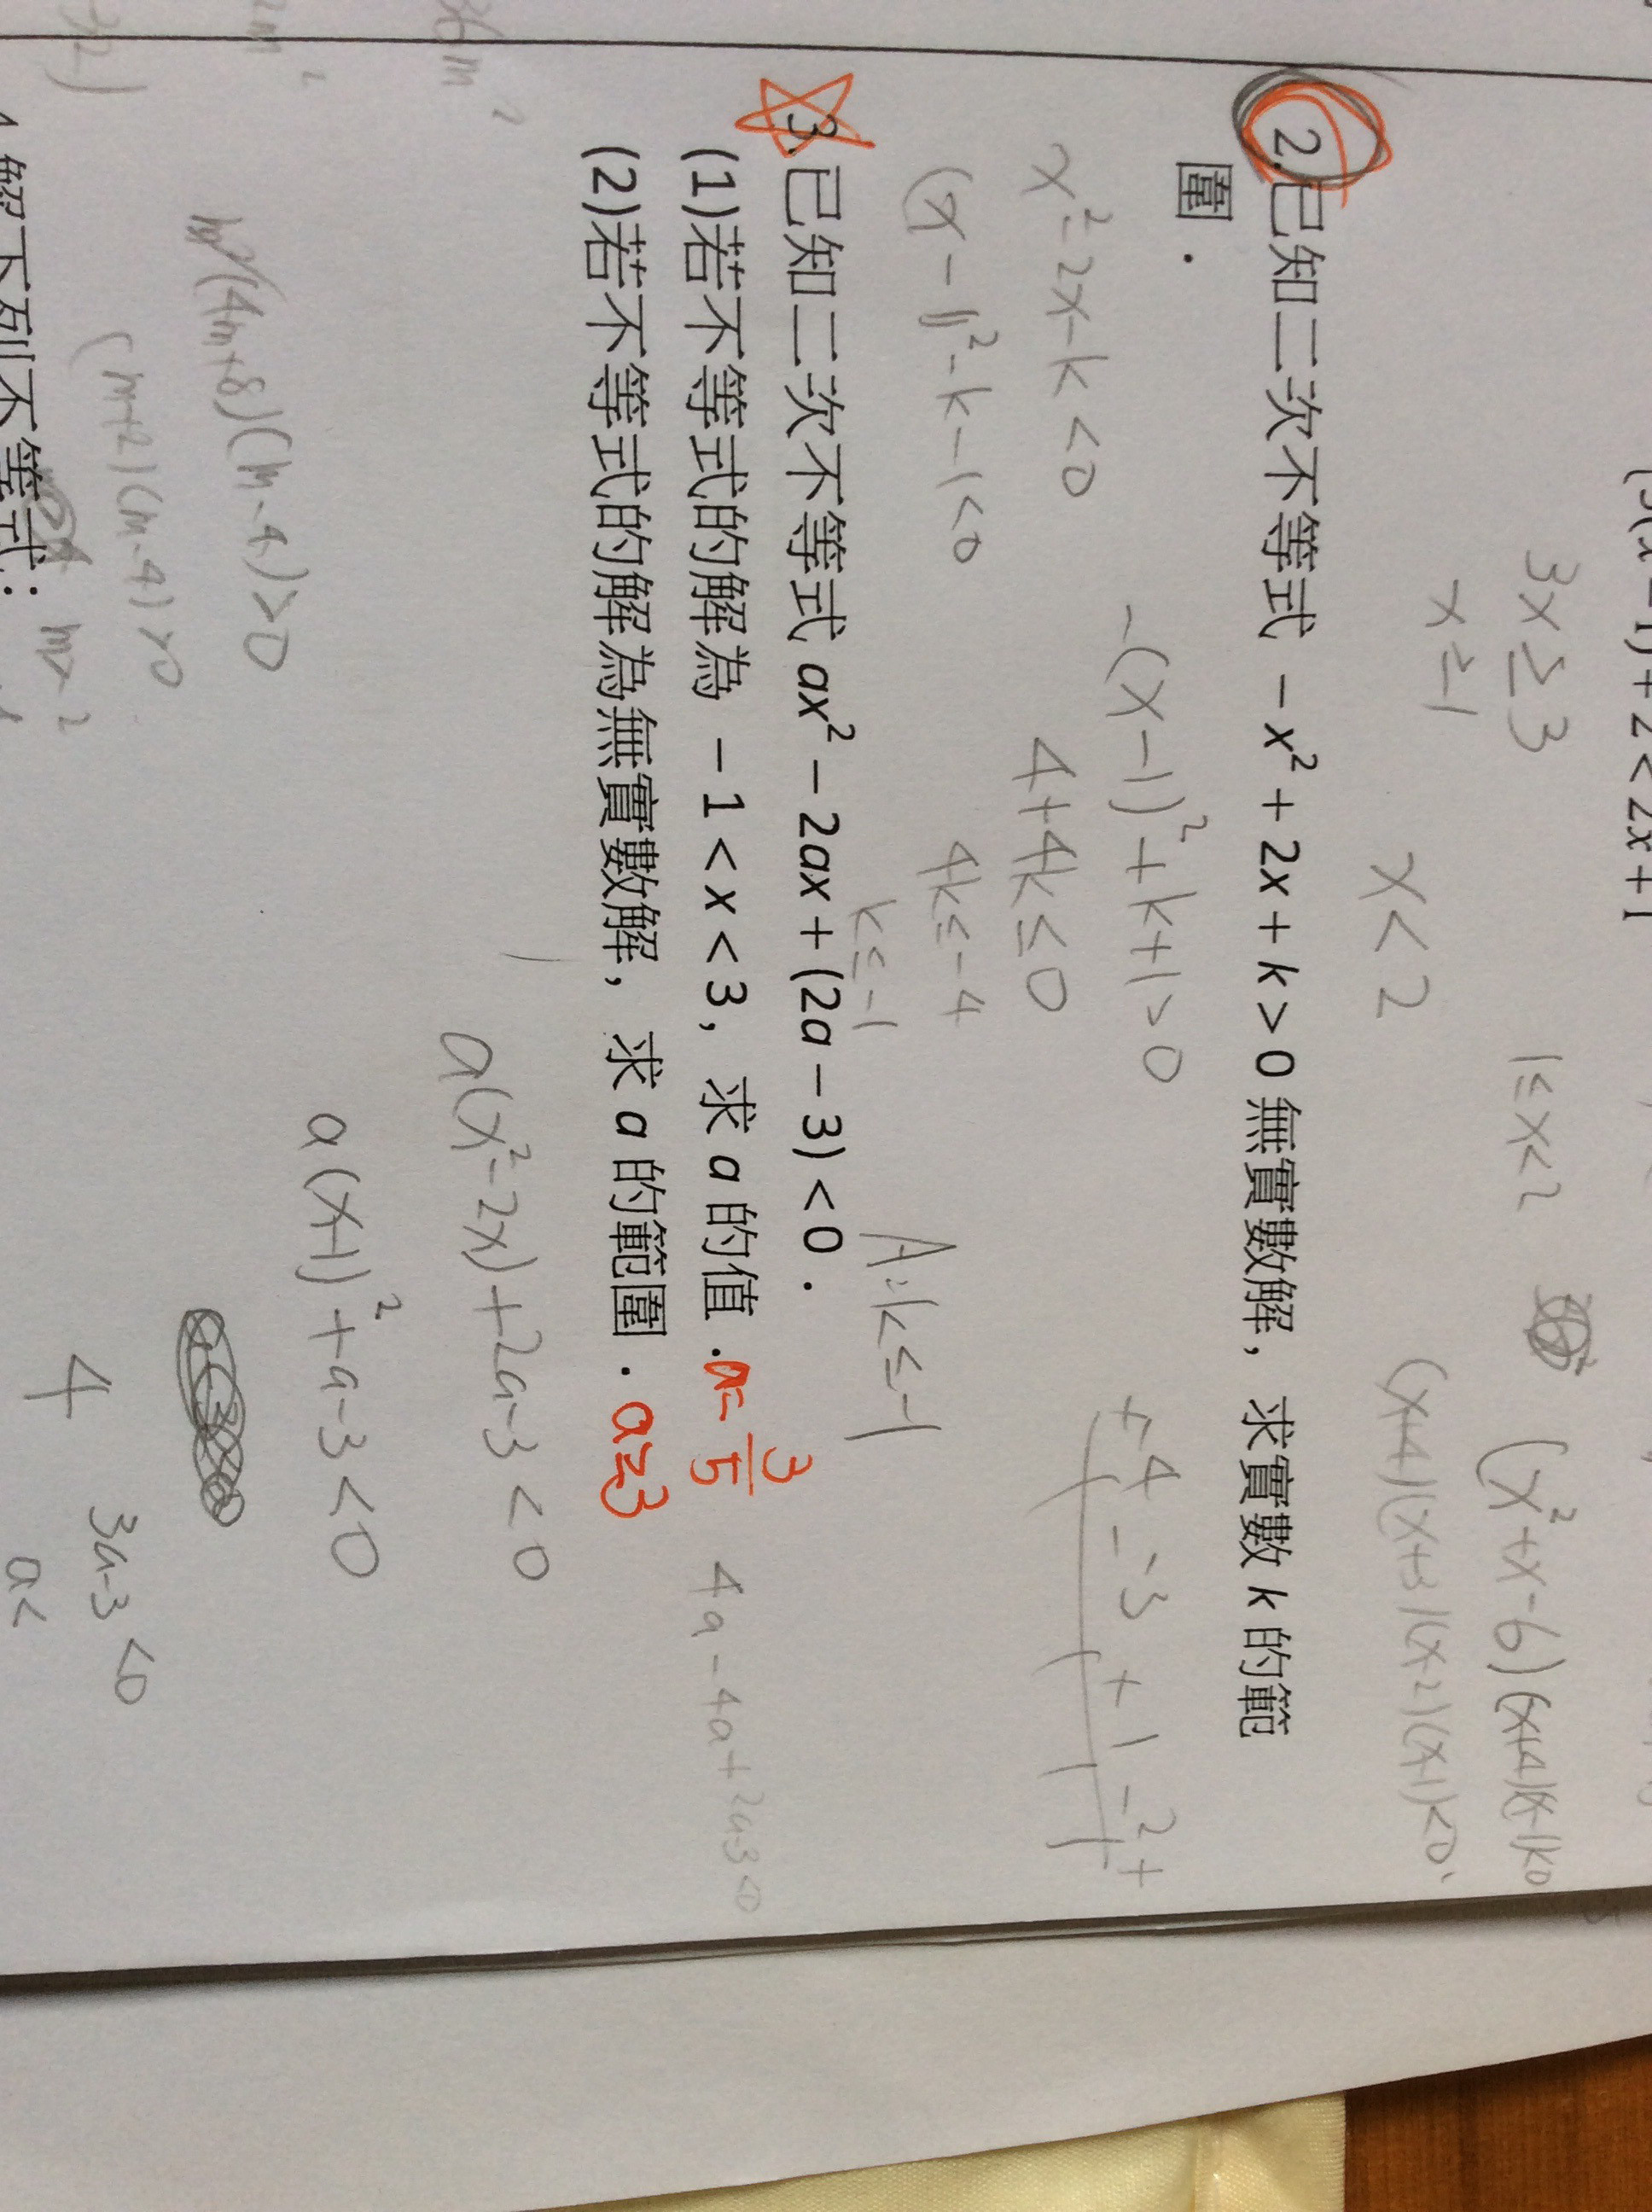 (x-1)+2<2x+1
3x≥3
x≥1
x<2
1≤x<2
(x²+x-6)(x+4)(x-1)<0
(x+4)(x+3)(x-2)(x-1)<0
2.已知二次不等式 -x²+2x+k>0 無實數解，求實數 k 的範
圍．
-(x-1)²+k+1>0
x²-2x-k<0
4+4k≤0
+ -4 - -3 + 1 - 2 +
(x-1)²-k-1<0
4k≤-4
k≤-1
A:k≤-1
3.已知二次不等式 ax²-2ax+(2a-3)<0．
(1)若不等式的解為 -1<x<3，求 a 的值．a=3/5
4a-4a+2a-3<0
(2)若不等式的解為無實數解，求 a 的範圍．a≥3
a(x²-2x)+2a-3<0
a(x-1)²+a-3<0
36m²
m²(4m+8)(m-4)>0
(m+2)(m-4)>0
3a-3<0
4
a<
解下列不等式：